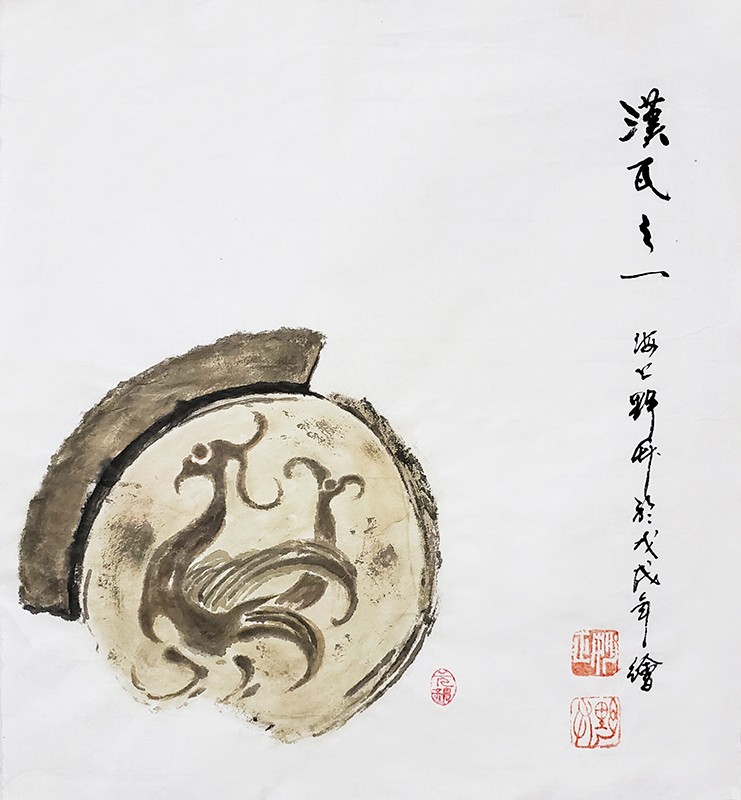 漢瓦之一
海上野草於戊戌年繪